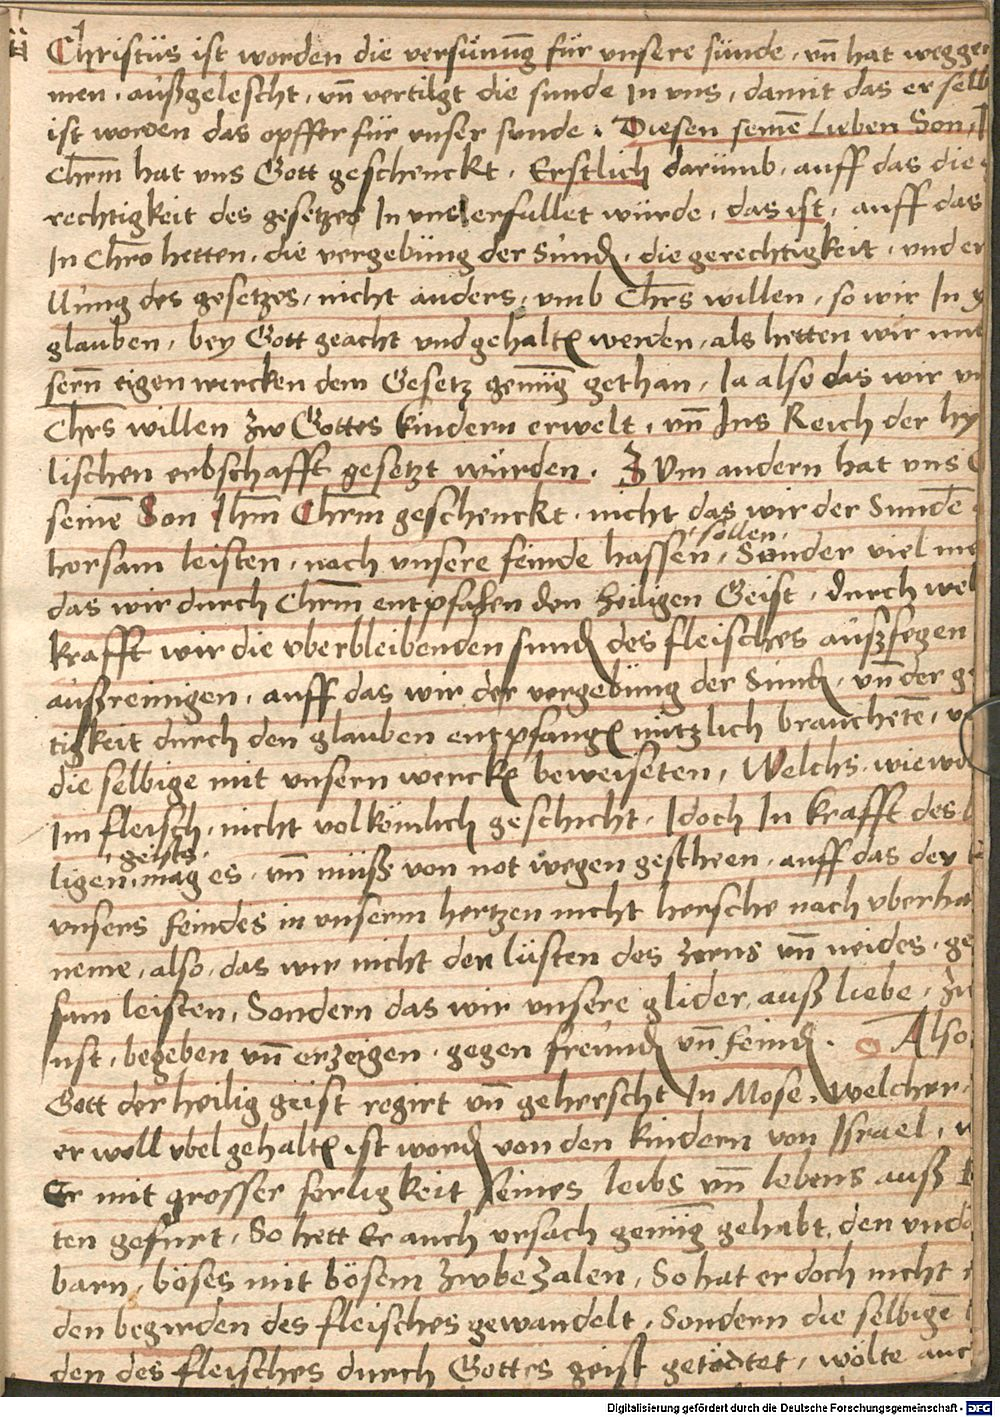 Christüs ist worden die versünüg für vnsere sünde, vn̄ hat wegge
men, außgelescht, vn̄ vertilgt die sunde In vns, damit das er selb
ist worden das opffer für vnser sunde. Diesen seinē Lieben Son,
Chrm̄ hat vns Gott geschenckt. Erstlich darümb, auff das die
rechtigkeit des gesetzes In vns erfullet würde, das ist, auff das
In Chro hetten, die vergebüng der Sund, die gerechtigkeit, vnd er
llüng des gesetzes, nicht anders, vmb Chrs willen, so wir In
glauben, bey Gott geacht vnd gehaltē werden, als hetten wir mit
sern̄ eigen wercken dem Gesetz genüg gethan, Ia also das wir
Chrs willen zw Gottes kindern erwelt, vn̄ Ins Reich der hy
lischen erbschafft gesetzt würden. Zum andern hat vns
seinē Son Ihm̄ Chrm̄ geschenckt, nicht das wir der Sunde
sollen
horsam leisten, noch vnsere feinde hassen, Sonder viel me
das wir durch Chrm̄ entpfahen den heiligen Geist, durch wel
krafft wir die vberbleibenden sund des fleisches außfegen
außreinigen, auff das wir der vergebüng der Sund, vn̄ der g
tigkeit durch den glauben entpfangē nützlich brauchetē,
die selbige mit vnsern werckē beweiseten, Welchs, wiewo
Im fleisch, nicht volkömlich geschicht, Idoch In krafft des
geists
ligen, mag es, vn̄ müß von not wegen gescheen, auff das der
vnsers feindes in vnserm hertzen nicht hersche noch vberha
neme, also, das wir nicht den lüsten des zorns vn̄ neides, ge
sam leisten, Sondern das wir vnsere glider auß liebe, zu
nst, begeben vn̄ erzeigen, gegen freund vn̄ feind. Also
Gott der heilig geist regirt vn̄ geherscht In Mose, Welcher,
er woll vbel gehaltē ist word von den kindern von Israel,
Er mit grosser ferligkeit seines leibs vn̄ lebens auß
ten gefurt, So hett Er auch vrsach genüg gehabt, den vnd
barn, böses mit bösem zwbezalen, So hat er doch nicht
den begirden des fleisches gewandelt, Sondern die selbigē
den des fleisches durch Gottes geist getödtet, wolte auc
Digitalisierung gefördert durch die Deutsche Forschungsgemeinschaft - DFG